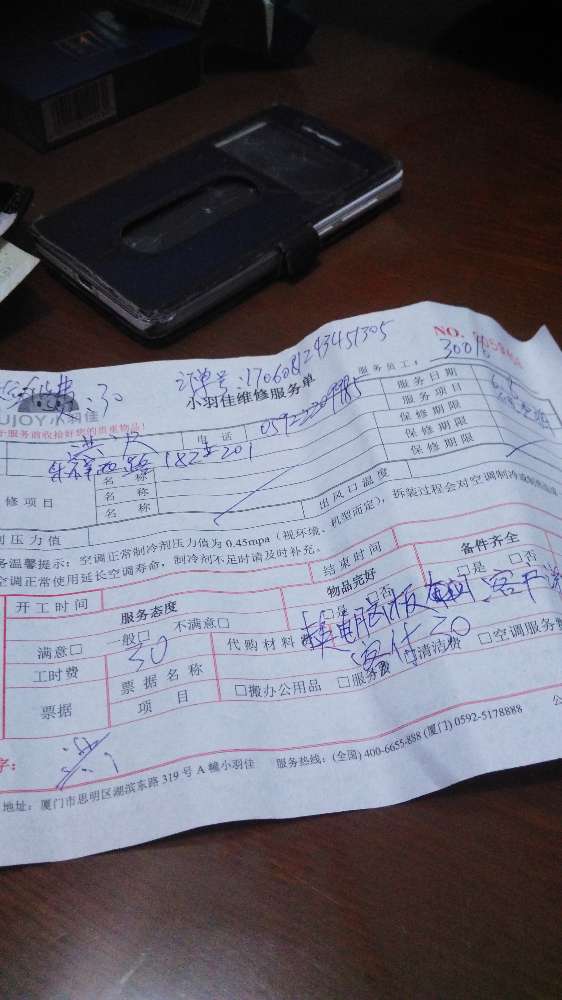 订单号:1706081243451305
NO.
:30
小羽佳维修服务单
服务员工:
3001
UJOY小羽佳
于服务前收拾好您的贵重物品!
电话
服务日期
6.8
服务项目
西路182#201
名称
保修期限
修项目
名称
保修期限
名称
保修期限
剂压力值
出风口温度
务温馨提示:空调正常制冷剂压力值为0.45mpa(视环境、机型而定),拆装过程会对空调制冷
空调正常使用延长空调寿命,制冷剂不足时请及时补充。
开工时间
结束时间
服务态度
物品完好
备件齐全
满意□ 一般□ 不满意□
□是 □否
□是 □否
工时费
30
代购材料费
换电脑板
客户
客付30
票据
票据名称
项目
□搬办公用品 □服务费 □清洁费 □空调服务费
字:
地址:厦门市思明区湖滨东路319号A幢小羽佳 服务热线:(全国)400-6655-888(厦门)0592-5178888